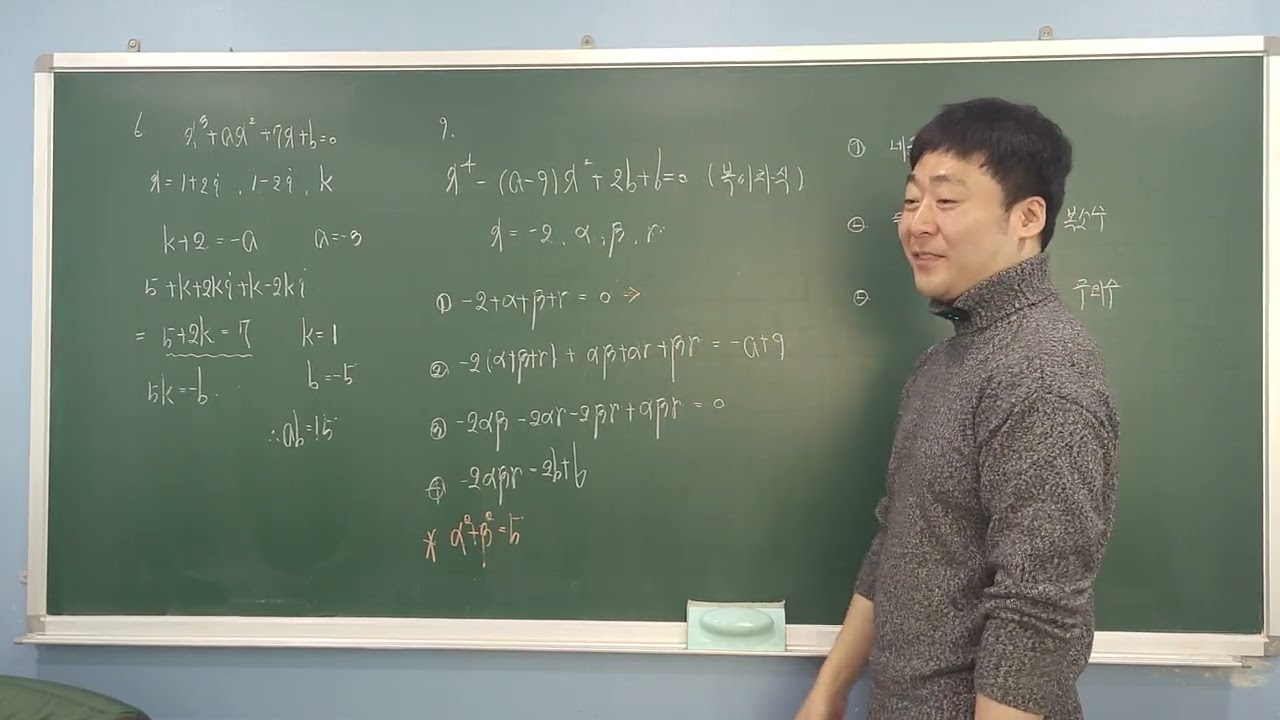 6
x³+ax²+7x+b=0
x=1+2i, 1-2i, k
k+2=-a a=-3
5+k+2ki+k-2ki
= 5+2k=7 k=1
5k=-b. b=-5
∴ab=15
9.
x⁴-(a-9)x²+2b+6=0 (복이차식)
x=-2, α, β, r
① -2+α+β+r=0 ⇒
② -2(α+β+r)+αβ+αr+βr=-a+9
③ -2αβ-2αr-2βr+αβr=0
④ -2αβr=2b+6
* α²+β²=5
㉠
㉡ 복소수
㉢